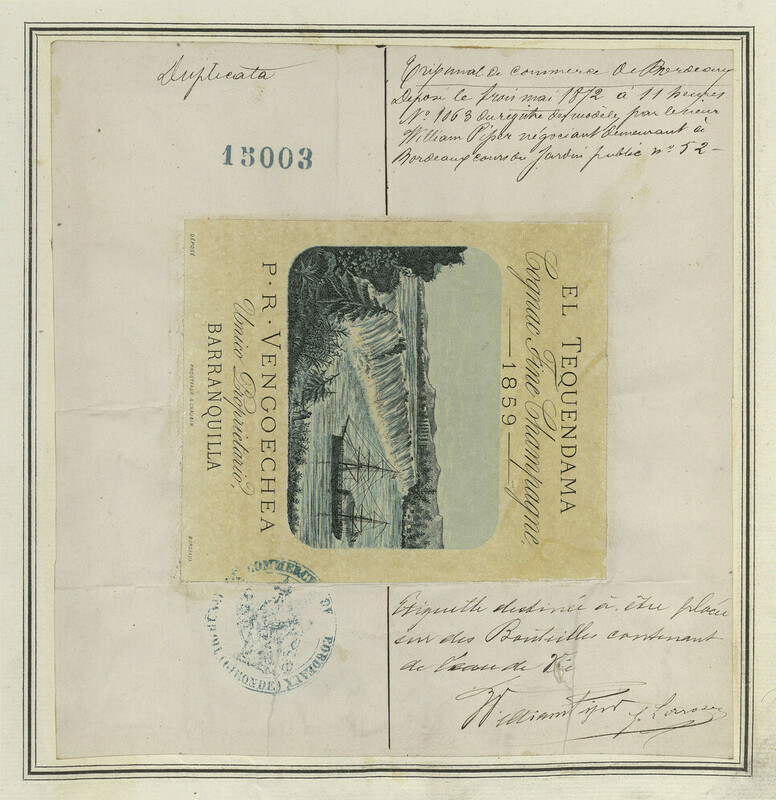 Duplicata
15003
Tribunal de commerce de Bordeaux
Déposé le trois mai 1872 à 11 heures
N° 1163 du registre des modèles par le sieur
William Piper négociant demeurant à
Bordeaux cours du Jardin public n° 52 -
EL TEQUENDAMA
Cognac Fine Champagne,
1859
P. R. VENGOECHEA
Unico Proprietario,
BARRANQUILLA
DÉPOSÉ
BORDEAUX
COMMERCE DE BORDEAUX
(GIRONDE)
Etiquette destinée à être placée
sur des Bouteilles contenant
de l'eau de Vie
William Piper